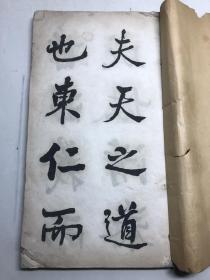 夫天之道
也東仁而